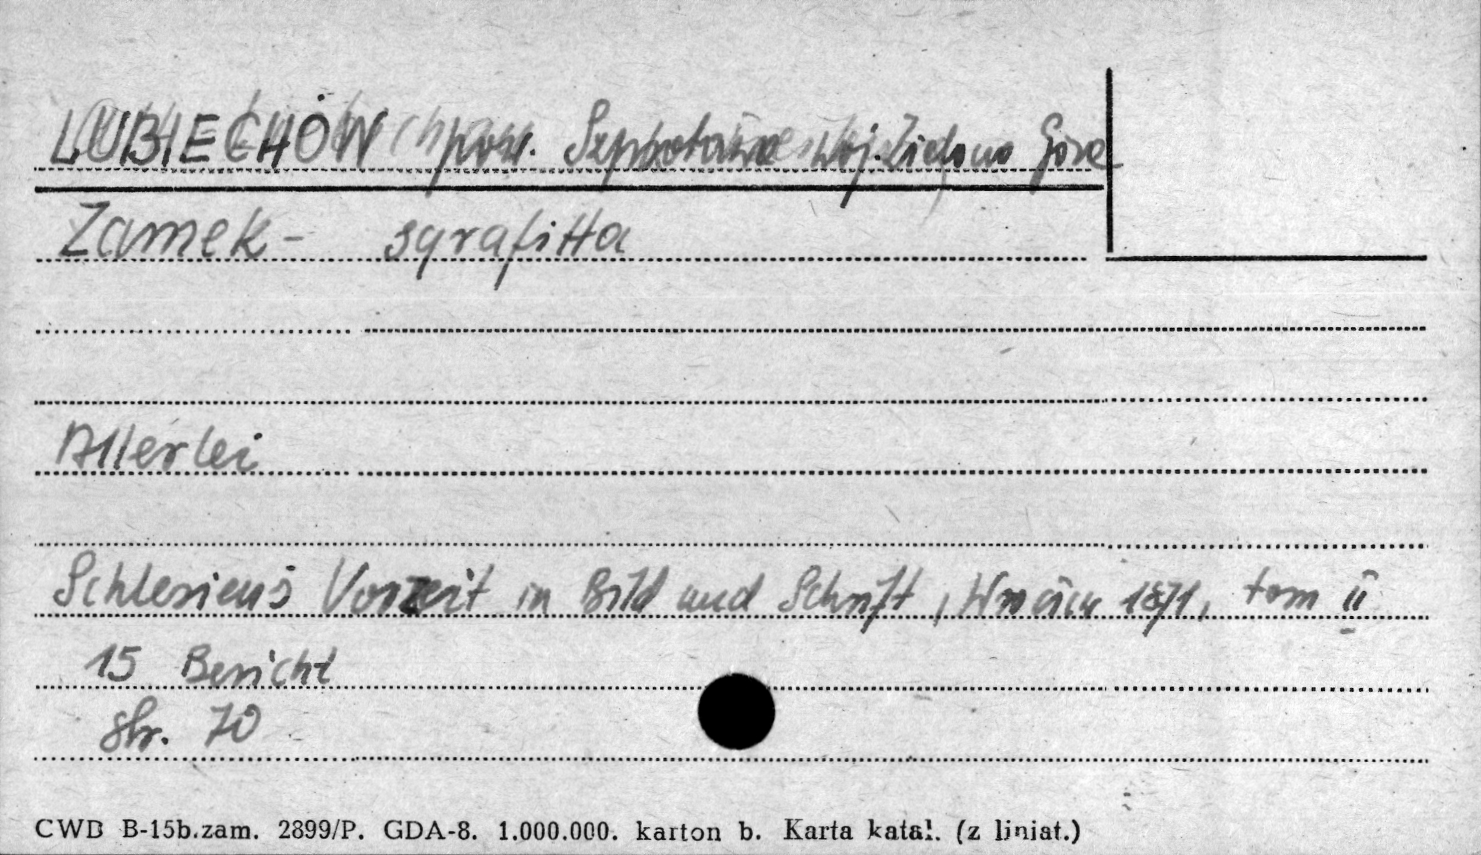 LUBIECHÓW pow. Szprotawa woj. Zielona Góra
Zamek - sgrafitta
Allerlei
Schlesiens Vorzeit in Bild und Schrift, Wrocław 1871, tom II
15 Bericht
str. 70
CWD B-15b.zam. 2899/P. GDA-8. 1.000.000. karton b. Karta katal. (z liniat.)